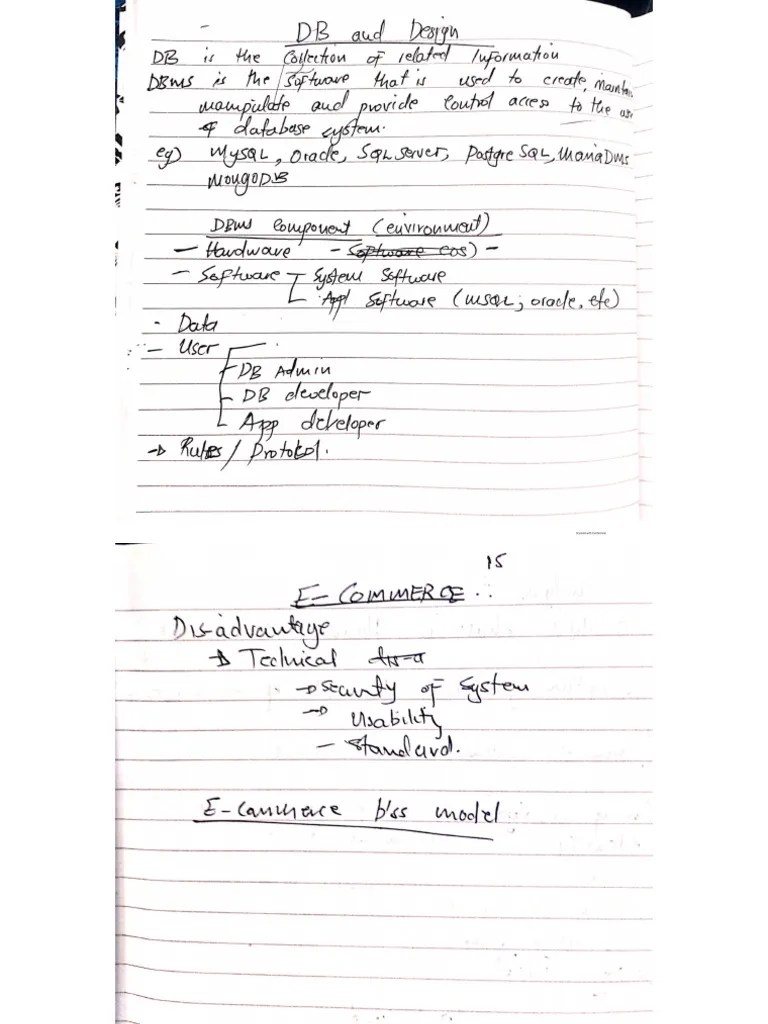 DB and Design
DB is the Collection of related Information
DBms is the Software that is used to create, maintain
manipulate and provide Control access to the
of database system.
eg) MySQL, Oracle, SQL Server, Postgre SQL, MariaDms
MongoDB
DBms Component (environment)
- Hardware - Software eos) -
- Software - System Software
Appl Software (MSQL, oracle, etc)
- Data
- User
- DB Admin
- DB developer
- App developer
→ Rules / Protocol.
15
E-COMMERCE
Dis-advantage
→ Technical
→ Security of System
→ Usability
- Standard.
E-commerce b'ss model